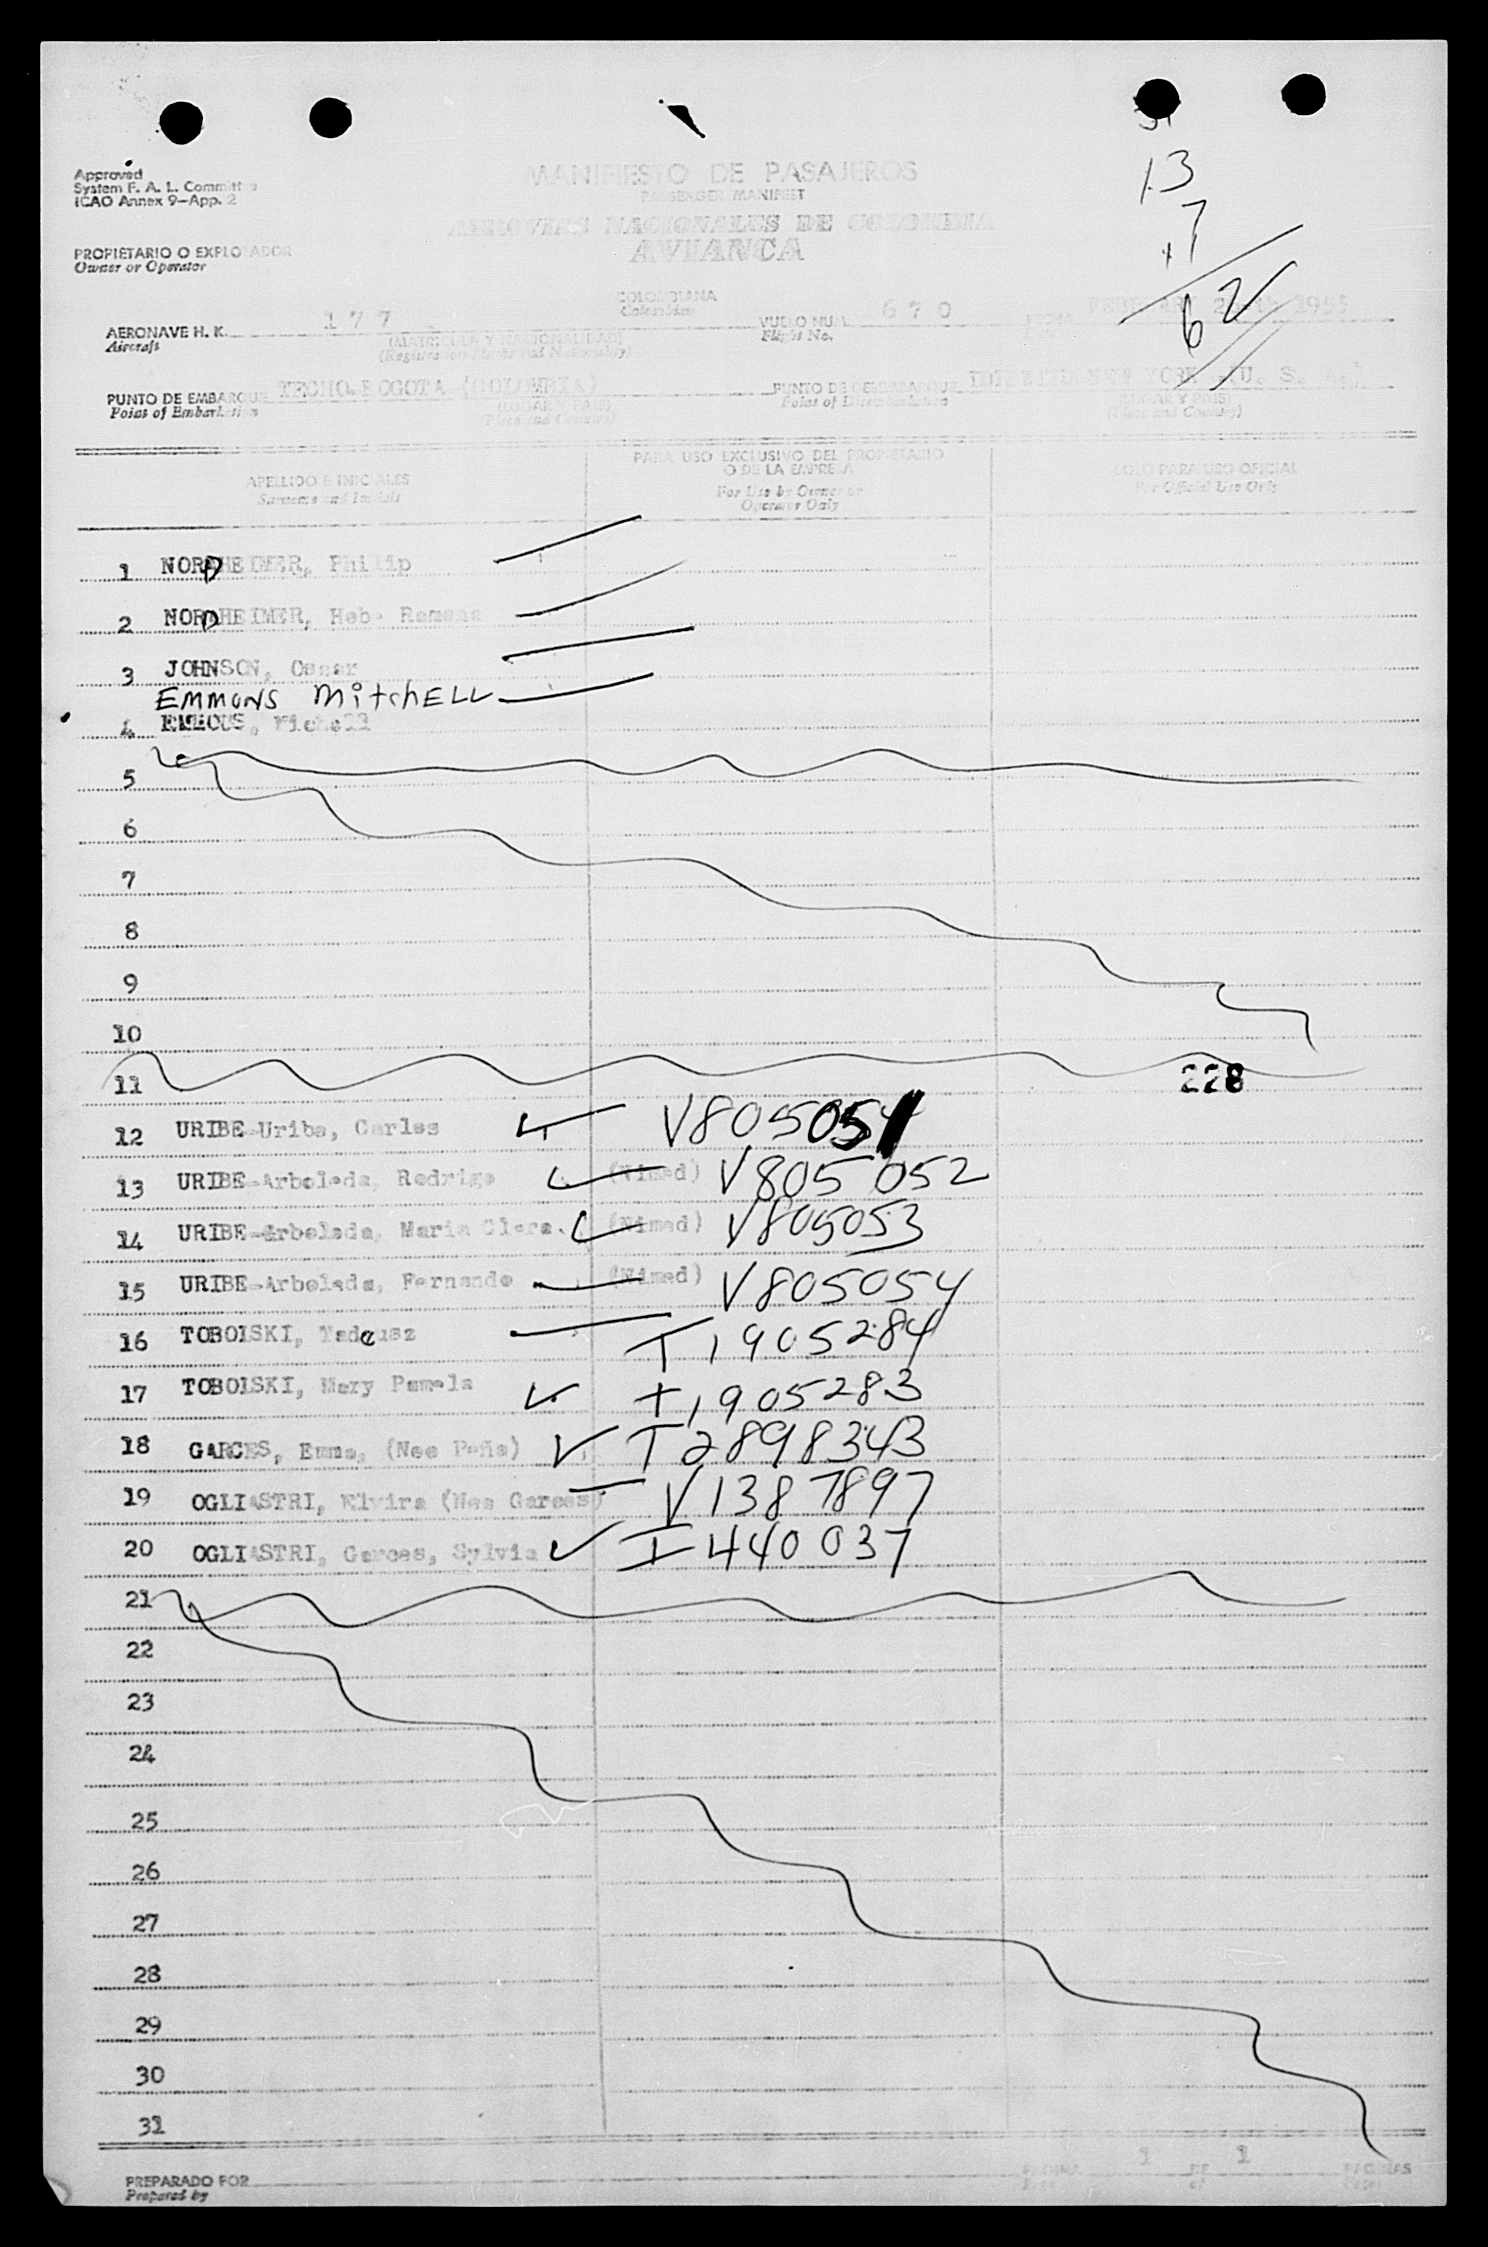 13
7
62
Approved
System F. A. L. Committee
ICAO Annex 9-App. 2
MANIFIESTO DE PASAJEROS
PASSENGER MANIFEST
AEROVIAS NACIONALES DE COLOMBIA
AVIANCA
PROPIETARIO O EXPLOTADOR
Owner or Operator
COLOMBIANA
Colombian
AERONAVE H. K. 177
Aircraft
(MATRICULA Y NACIONALIDAD)
(Registration Marks and Nationality)
VUELO NUM. 670
Flight No.
FEBRUARY 1955
PUNTO DE EMBARQUE TECHO-BOGOTA (COLOMBIA)
Point of Embarkation
(LUGAR Y PAIS)
(Place and Country)
PUNTO DE DESEMBARQUE NEW YORK (U. S. A.)
Point of Disembarkation
(LUGAR Y PAIS)
(Place and Country)
APELLIDO E INICIALES
Surname and Initials
PARA USO EXCLUSIVO DEL PROPIETARIO
O DE LA EMPRESA
For Use by Owner or
Operator Only
SOLO PARA USO OFICIAL
For Official Use Only
1 NORDHEIMER, Philip
2 NORDHEIMER, Hebe Ramona
3 JOHNSON, Oscar
EMMONS MitchELL
4
5
6
7
8
9
10
11 228
12 URIBE-Uribe, Carlos V805051
13 URIBE-Arboleda, Rodrigo (Nimed) V805052
14 URIBE-Arboleda, Maria Clara. (Nimed) V805053
15 URIBE-Arboleda, Fernando (Nimed) V805054
16 TOBOLSKI, Tadeusz T1905284
17 TOBOLSKI, Mary Pamela T1905283
18 GARCES, Emma, (Nee Peña) T2898343
19 OGLIASTRI, Elvira (Nee Garces) V1387897
20 OGLIASTRI, Garces, Sylvia I440037
21
22
23
24
25
26
27
28
29
30
31
PREPARADO POR
Prepared by
PAGINA 1 DE 1 PAGINAS